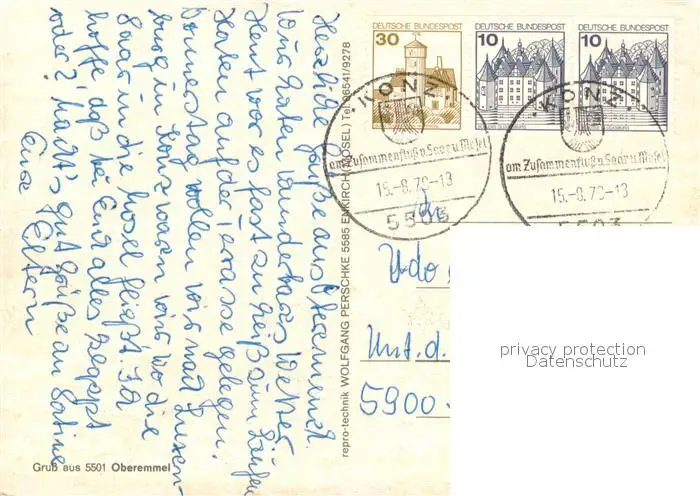 Herzliche Grüße aus Oberemmel.
Wir haben wunderbares Wetter
Heut war es fast zu heiß zum Laufen
Haben auf der Terasse gelegen.
Donnerstag wollen wir nach Luxem-
burg in Konz waren wir wo die
Saar in die Mosel fließt. Ich
hoffe, daß bei Euch alles klappt
oder? Macht's gut Grüße an Sabine
Eure Eltern
Gruß aus 5501 Oberemmel
repro-technik WOLFGANG PERSCHKE 5585 ENKIRCH (MOSEL) Tel. 06541/9278
DEUTSCHE BUNDESPOST
30
DEUTSCHE BUNDESPOST
10
DEUTSCHE BUNDESPOST
10
KONZ
am Zusammenfluß v. Saar u. Mosel
15.-8.79-13
5503
KONZ
am Zusammenfluß v. Saar u. Mosel
15.-8.79-13
5503
An
Udo
Unt. d.
5900
privacy protection
Datenschutz